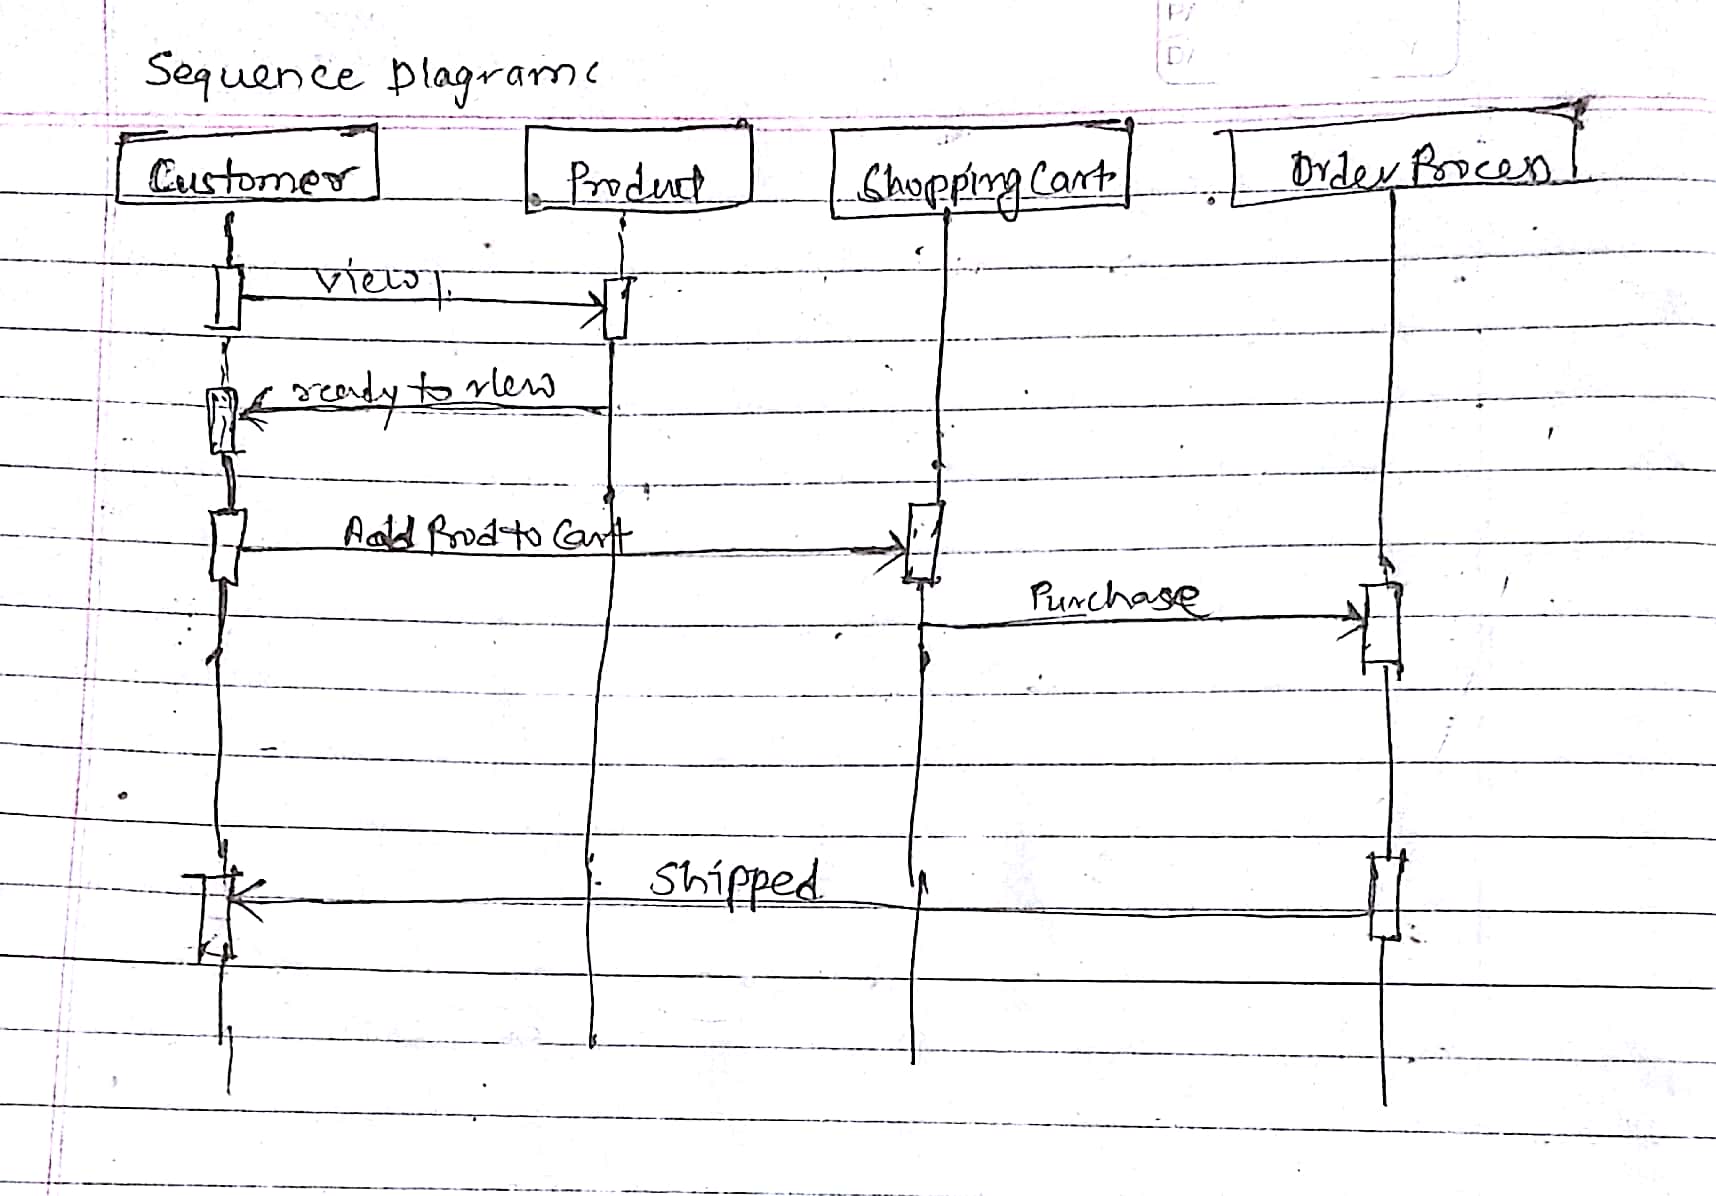 P/
D/
Sequence Diagram
Customer
Product
Shopping Cart
Order Process
view
ready to view
Add Prod to Cart
Purchase
Shipped